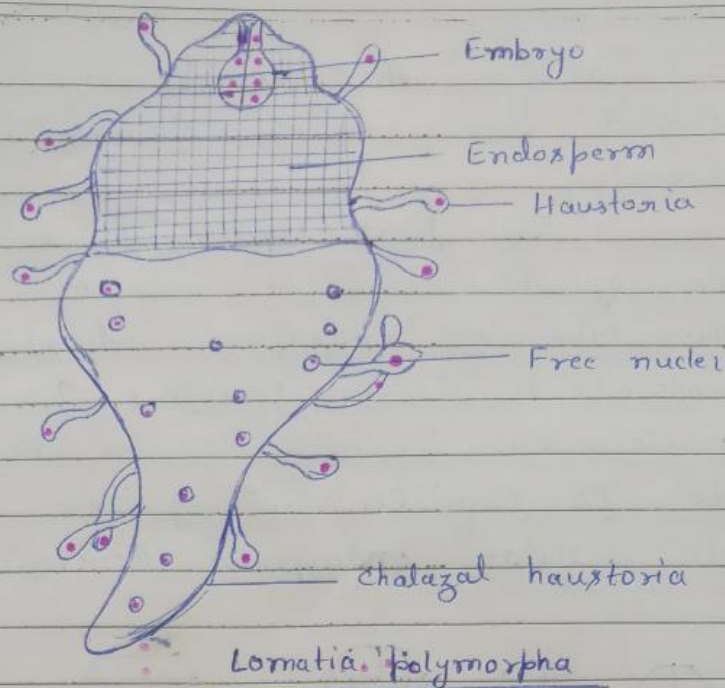 Embryo
Endosperm
Haustoria
Free nuclei
Chalazal haustoria
Lomatia polymorpha